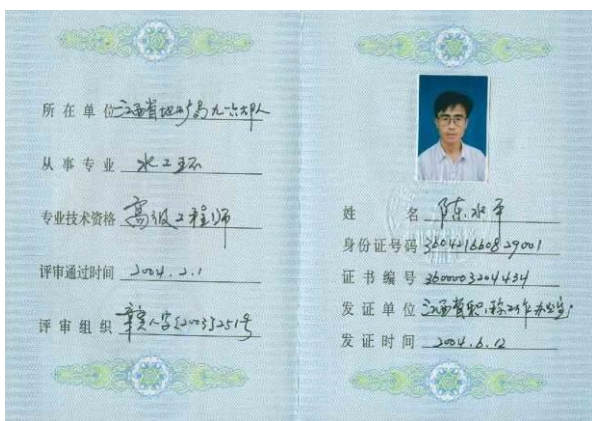 所在单位 江西省地矿局九一六大队
从事专业 水工环
专业技术资格 高级工程师
评审通过时间 2004.2.1
评审组织 人字[2003]251号
姓名 陈水平
身份证号码 360421660829001
证书编号 3600003204434
发证单位 江西省职称工作办公室
发证时间 2004.6.12